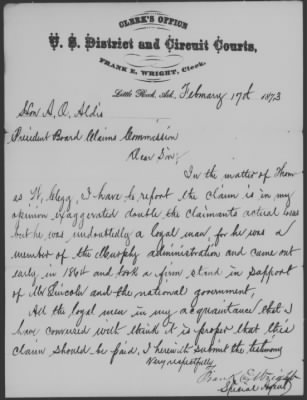 CLERK'S OFFICE
U. S. District and Circuit Courts,
FRANK E. WRIGHT, Clerk.
Little Rock, Ark, February 17th 1873
Hon A. O. Aldis
President Board Claims Commission
Dear Sir;
In the matter of Thom
as W, Clegg, I have to report the claim is in my
opinion exaggerated double, the claimants actual loss
but he was undoubtedly a loyal man, for he was a
member of the Murphy administration and came out
early in 1864 and took a firm stand in support
of Mr Lincoln and the national government,
All the loyal men in my acquaintance that I
have conversed with think it is proper that this
claim should be paid, I herewith submit the testimony
Very respectfully
Frank E Wright
Special Agent